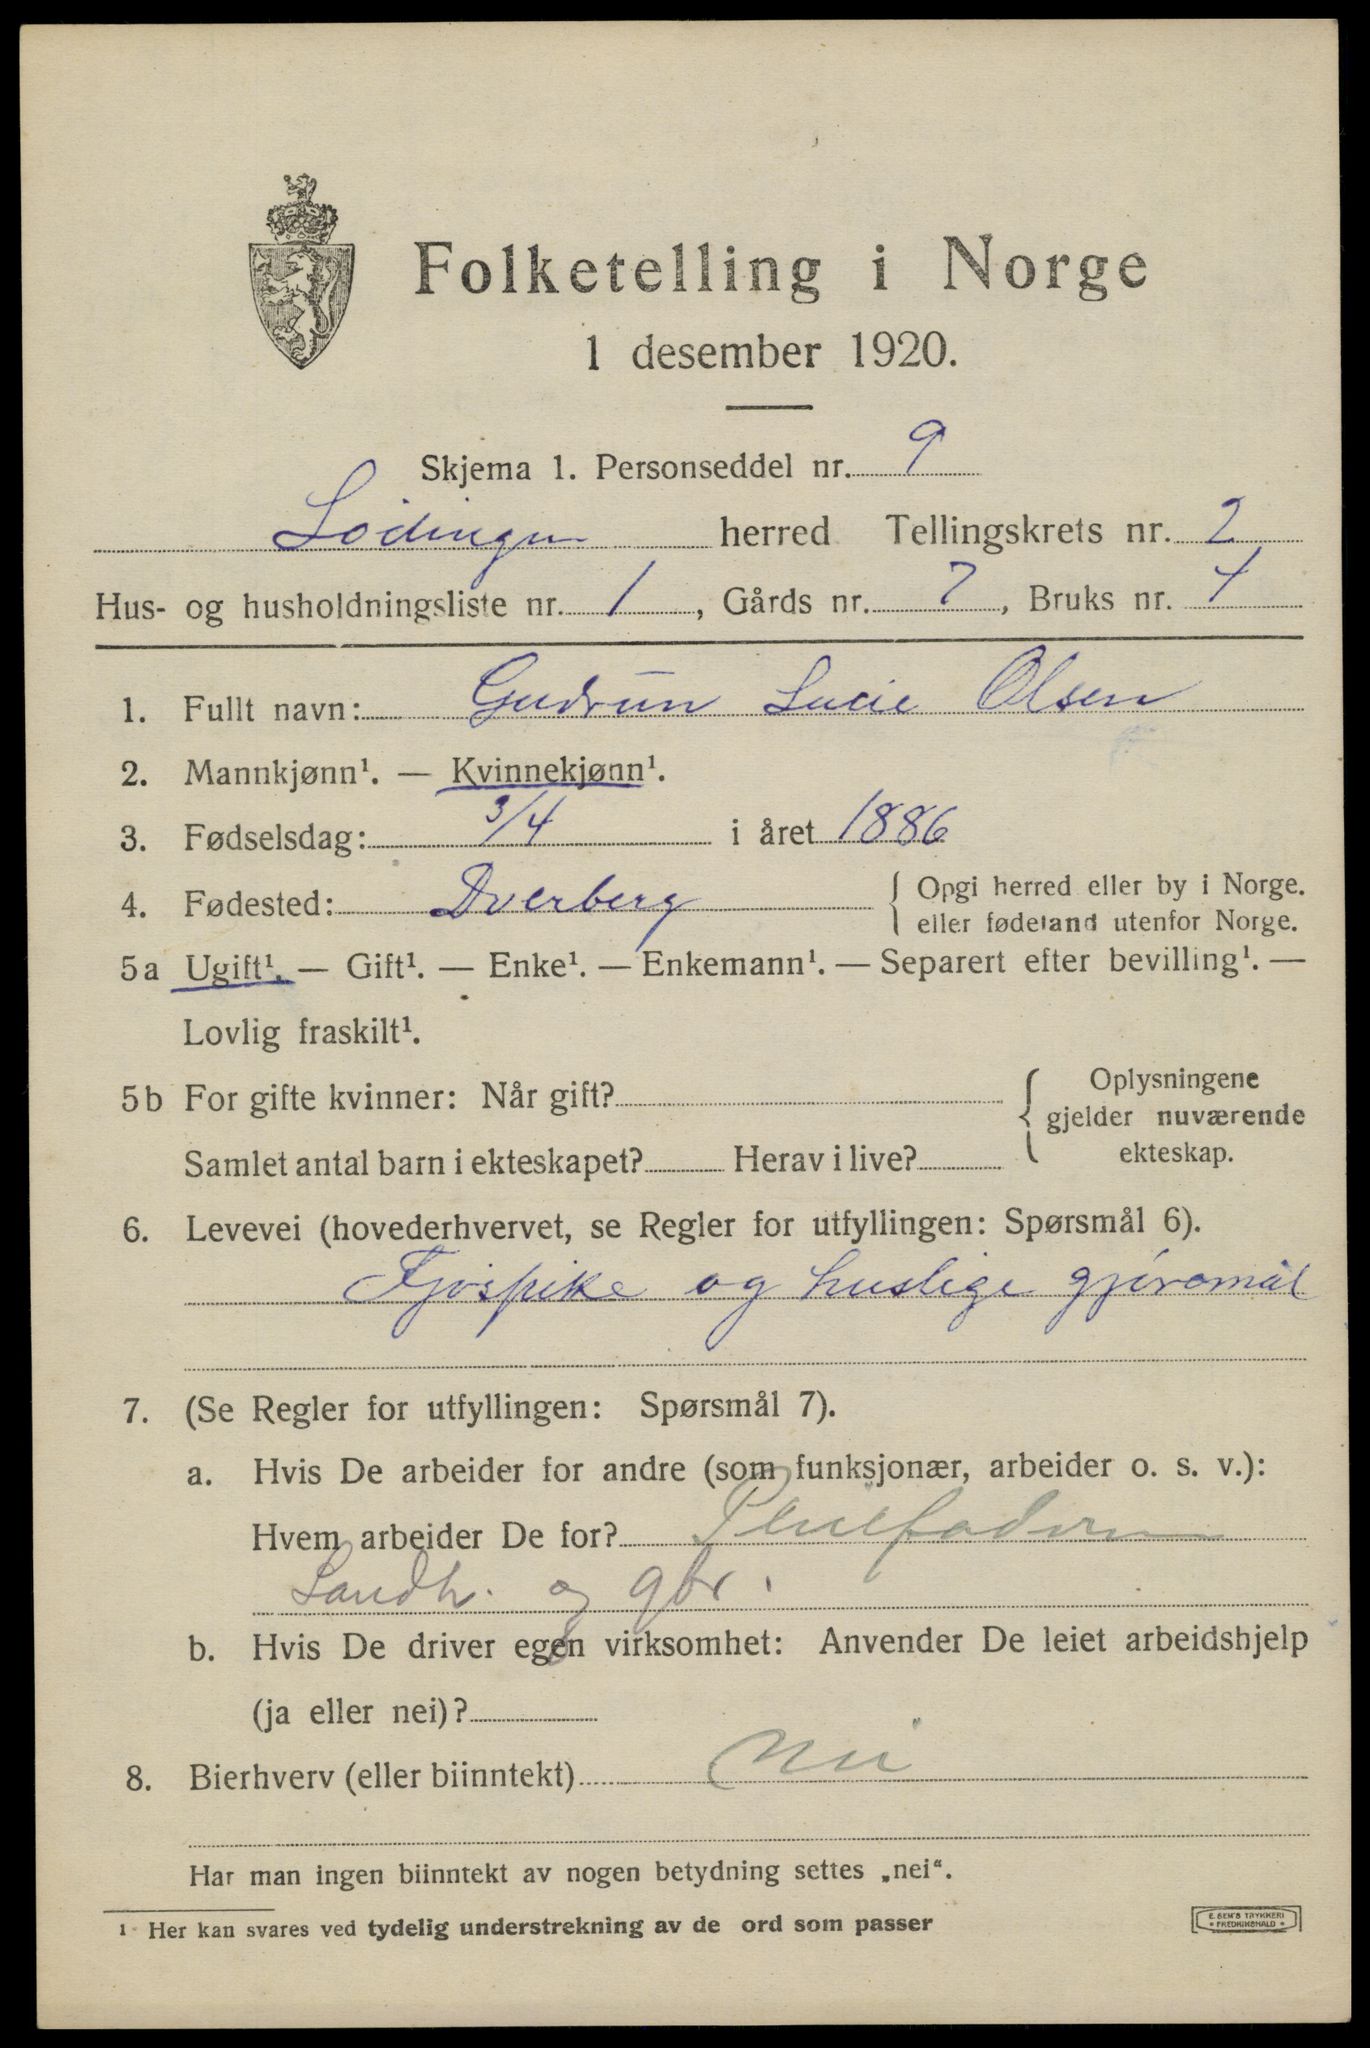 Folketelling i Norge
1 desember 1920.
Skjema 1. Personseddel nr. 9
Lödingen herred Tellingskrets nr. 2
Hus- og husholdningsliste nr. 1, Gårds nr. 7, Bruks nr. 4
1. Fullt navn: Gudrun Lucie Olsen
2. Mannkjønn¹. — Kvinnekjønn¹.
3. Fødselsdag: 3/4 i året 1886
4. Fødested: Dverberg { Opgi herred eller by i Norge.
eller fødeland utenfor Norge.
5a Ugift¹. — Gift¹. — Enke¹. — Enkemann¹. — Separert efter bevilling¹. —
Lovlig fraskilt¹.
5b For gifte kvinner: Når gift? { Oplysningene
gjelder nuværende
ekteskap.
Samlet antal barn i ekteskapet? Herav i live?
6. Levevei (hovederhvervet, se Regler for utfyllingen: Spørsmål 6).
Fjöspike og huslige gjöromål
7. (Se Regler for utfyllingen: Spørsmål 7).
a. Hvis De arbeider for andre (som funksjonær, arbeider o. s. v.):
Hvem arbeider De for? Pleiefaderen
Landh. og gbr.
b. Hvis De driver egen virksomhet: Anvender De leiet arbeidshjelp
(ja eller nei)?
8. Bierhverv (eller biinntekt) Nei
Har man ingen biinntekt av nogen betydning settes „nei“.
1 Her kan svares ved tydelig understrekning av de ord som passer
E. SEM'S TRYKKERI
• FREDRIKSHALD •